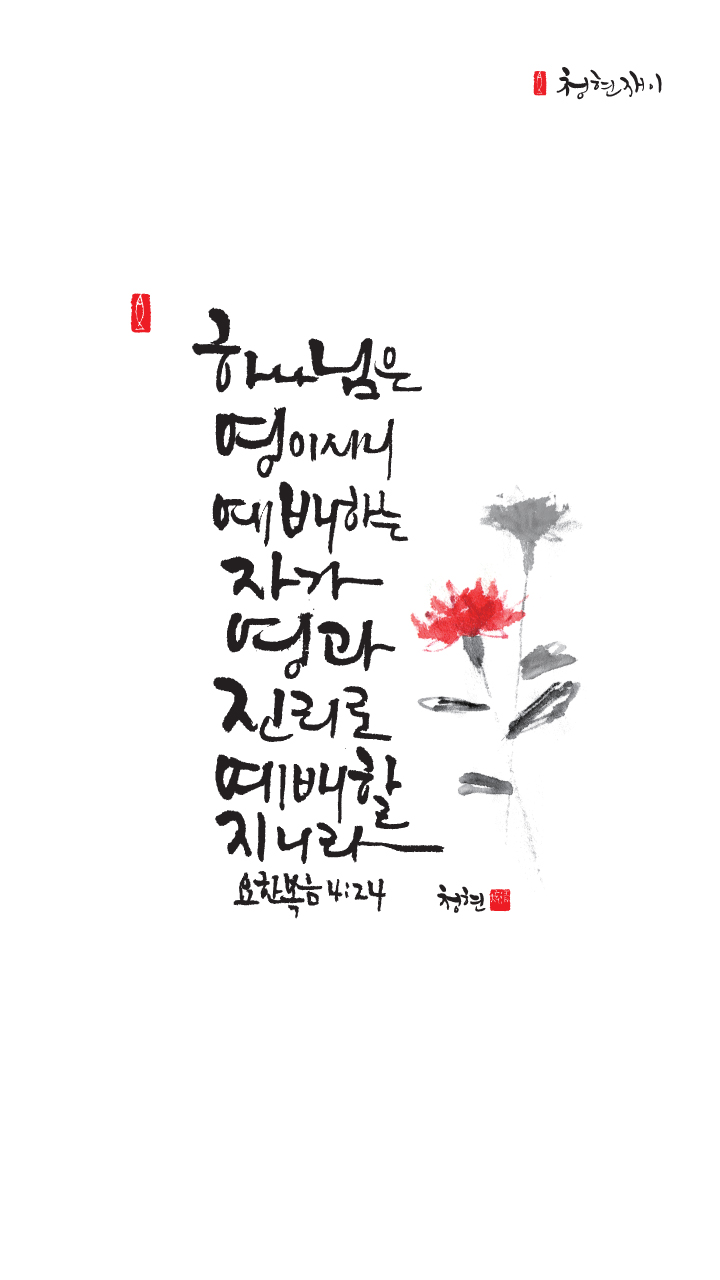 청현재이
하나님은
영이시니
예배하는
자가
영과
진리로
예배할
지니라
요한복음 4:24
청현